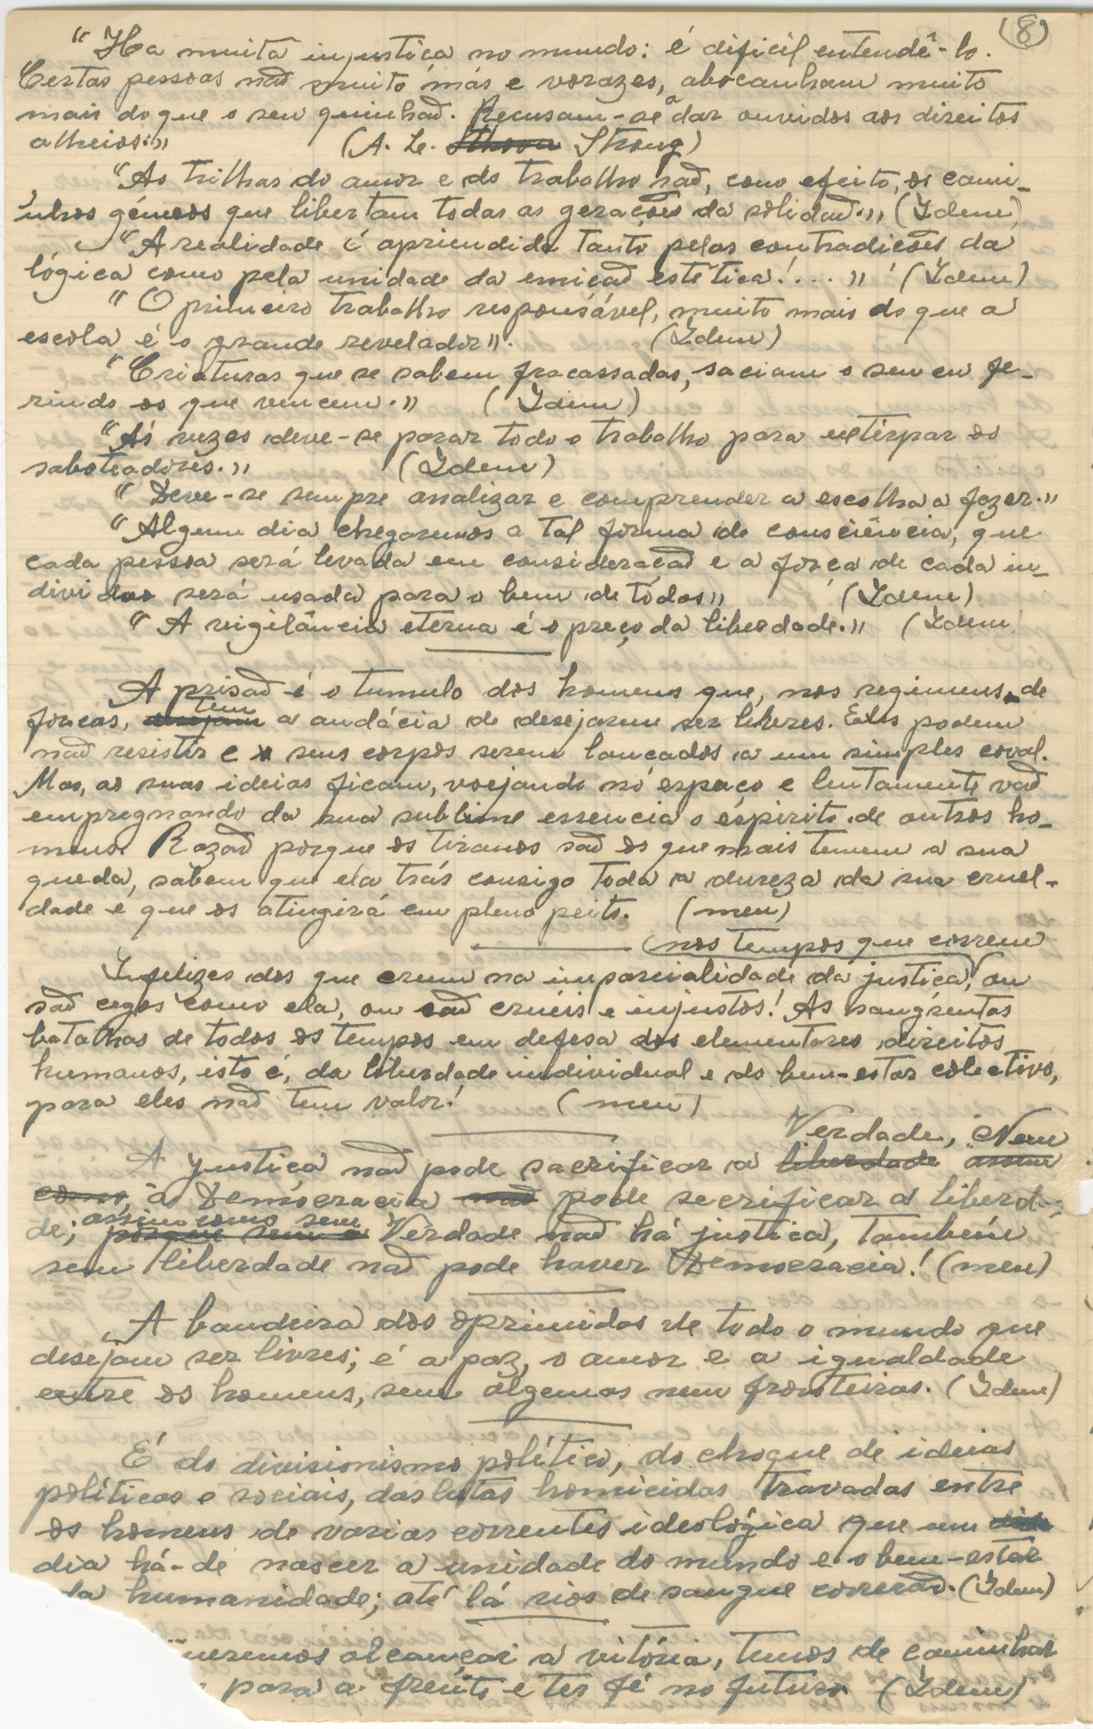 (8)
“Ha muita injustiça no mundo: é dificil entendê-lo.
Certas pessoas não muito más e vorazes, abocanham muito
mais do que o seu quinhão. Recusam-se a dar ouvidos aos direitos
alheios.” (A. L. Strong)
“As trilhas do amor e do trabalho são, com efeito, os cami-
nhos gémeos que libertam todas as gerações da solidão.” (Idem)
“A realidade é apriendida tanto pelas contradições da
lógica como pela unidade da emição estética!...” (Idem)
“O primeiro trabalho responsável, muito mais do que a
escola é o grande revelador”. (Idem)
“Criaturas que se sabem fracassadas, saciam o seu eu fe-
rindo os que vencem.” (Idem)
“Ás vezes deve-se parar todo o trabalho para extirpar os
sabotadores.” (Idem)
“Deve-se sempre analizar e comprender a escolha a fazer.”
“Algum dia chegaremos a tal forma de consciência, que
cada pessoa será levada em consideração e a força de cada in-
dividuo será usada para o bem de todos” (Idem)
“A vigilância eterna é o preço da liberdade.” (Idem
A prisão é o tumulo dos homens que, nos regimens de
forcas, tem a audácia de desejarem ser líberes. Eles podem
não resistir e seus corpos serem lançados a um simples coval.
Mas, as suas ideias ficam, voejando no espaço e lentamente vão
empregnando da sua sublime essencia o espirito de outros ho-
mens. Razão porque os tiranos são os que mais temem a sua
queda, sabem que ela trás consigo toda a dureza da sua cruel-
dade é que os atingirá em pleno peito. (meu)
(nos tempos que correm
Infelizes dos que crem na imparcialidade da justiça, ou
são cegos como ela, ou são cruéis e injustos! As sangrentas
batalhas de todos os tempos em defesa dos elementares direitos
humanos, isto é, da liberdade individual e do bem-estar colectivo,
para eles não tem valor! (meu)
Verdade, Nem
A justiça não pode sacrificar a liberdade assim
como a Democracia não pode secrificar a liberda-
de; assim como sem
porque sem a Verdade não há justiça, também
sem liberdade não pode haver Democracia! (meu)
A bandeira dos oprimidos de todo o mundo que
desejam ser livres; é a paz, o amor e a igualdade
entre os homens, sem algemas nem fronteiras. (Idem)
É do divisionismo polítiço, do choque de ideias
políticas e sociais, das lutas homicidas travadas entre
os homens de varias correntes ideológica que um
dia há-de nascer a unidade do mundo e o bem-estar
da humanidade; até lá rios de sangue correrão. (Idem)
ueremos alcançar a vitória, temos de caminhar
para a frente e ter fé no futuro (Idem)